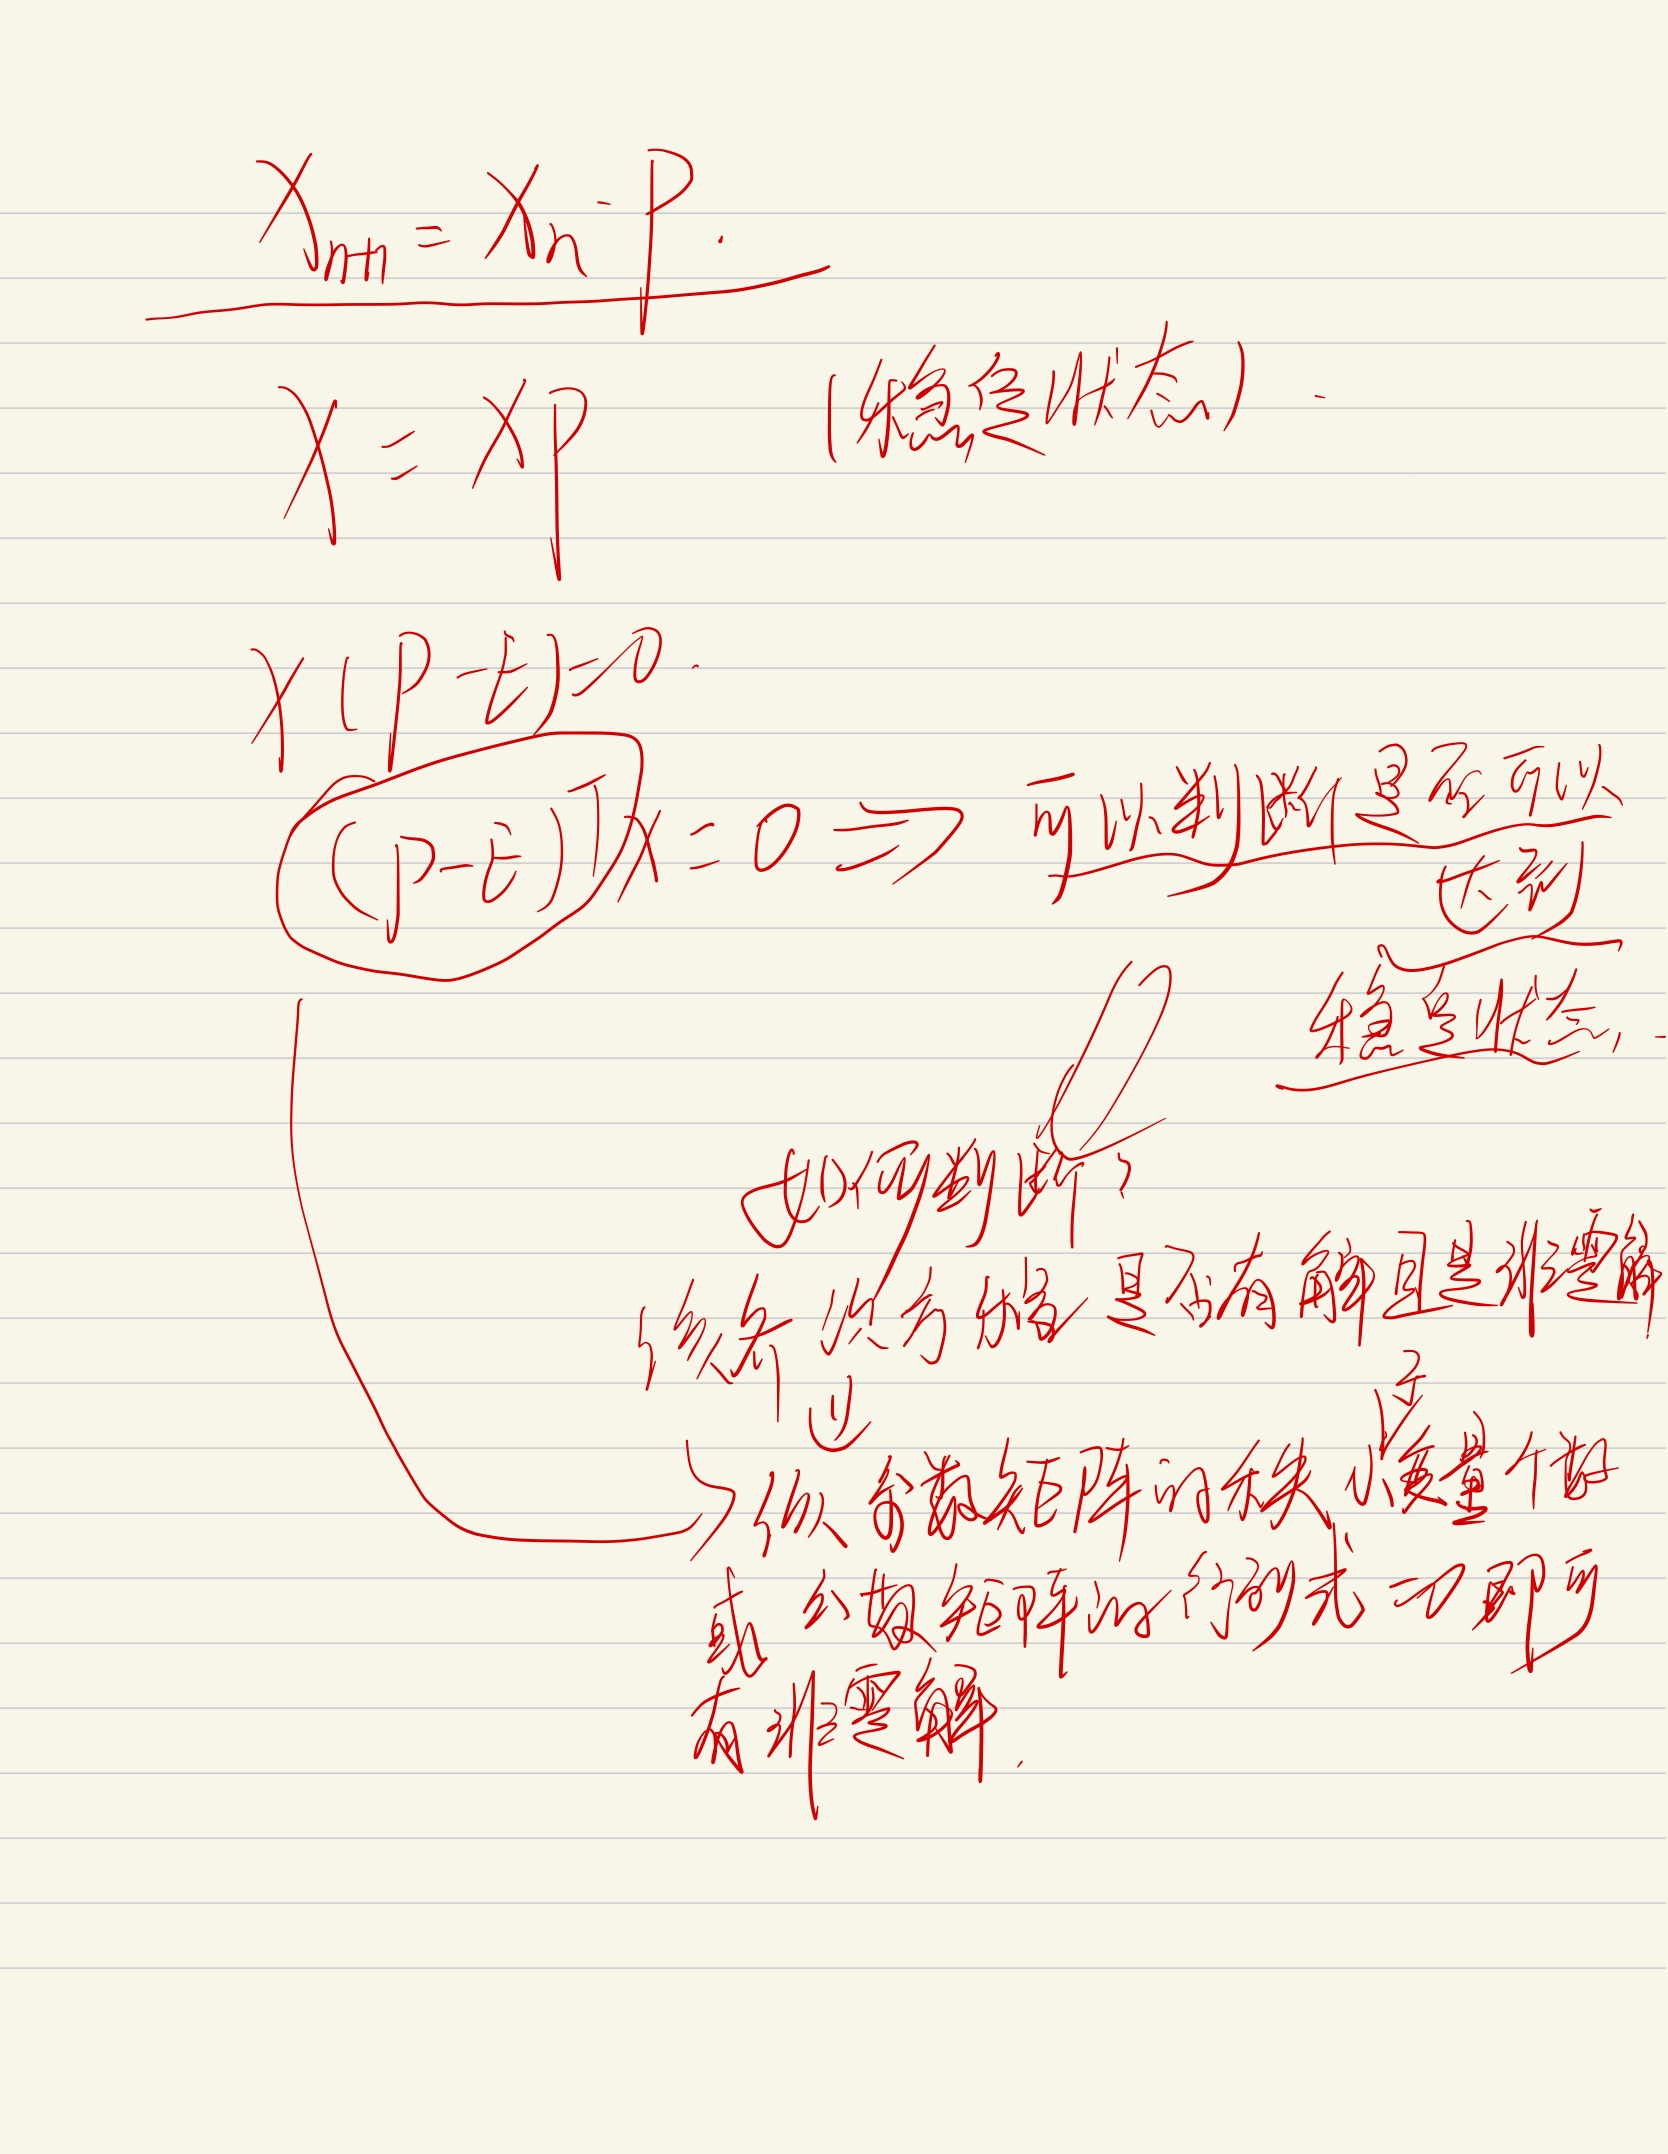 X_{n+1} = X_n · P.
X = XP （稳定状态）.
X(P-E)=0.
(P-E)^T X = 0 ⇒ 可以判断是否可以
达到
稳定状态.
如何判断?
该齐次方程是否有解且是非零解
⇓
系数矩阵的秩小于变量个数
或 系数矩阵的行列式=0即可
有非零解.